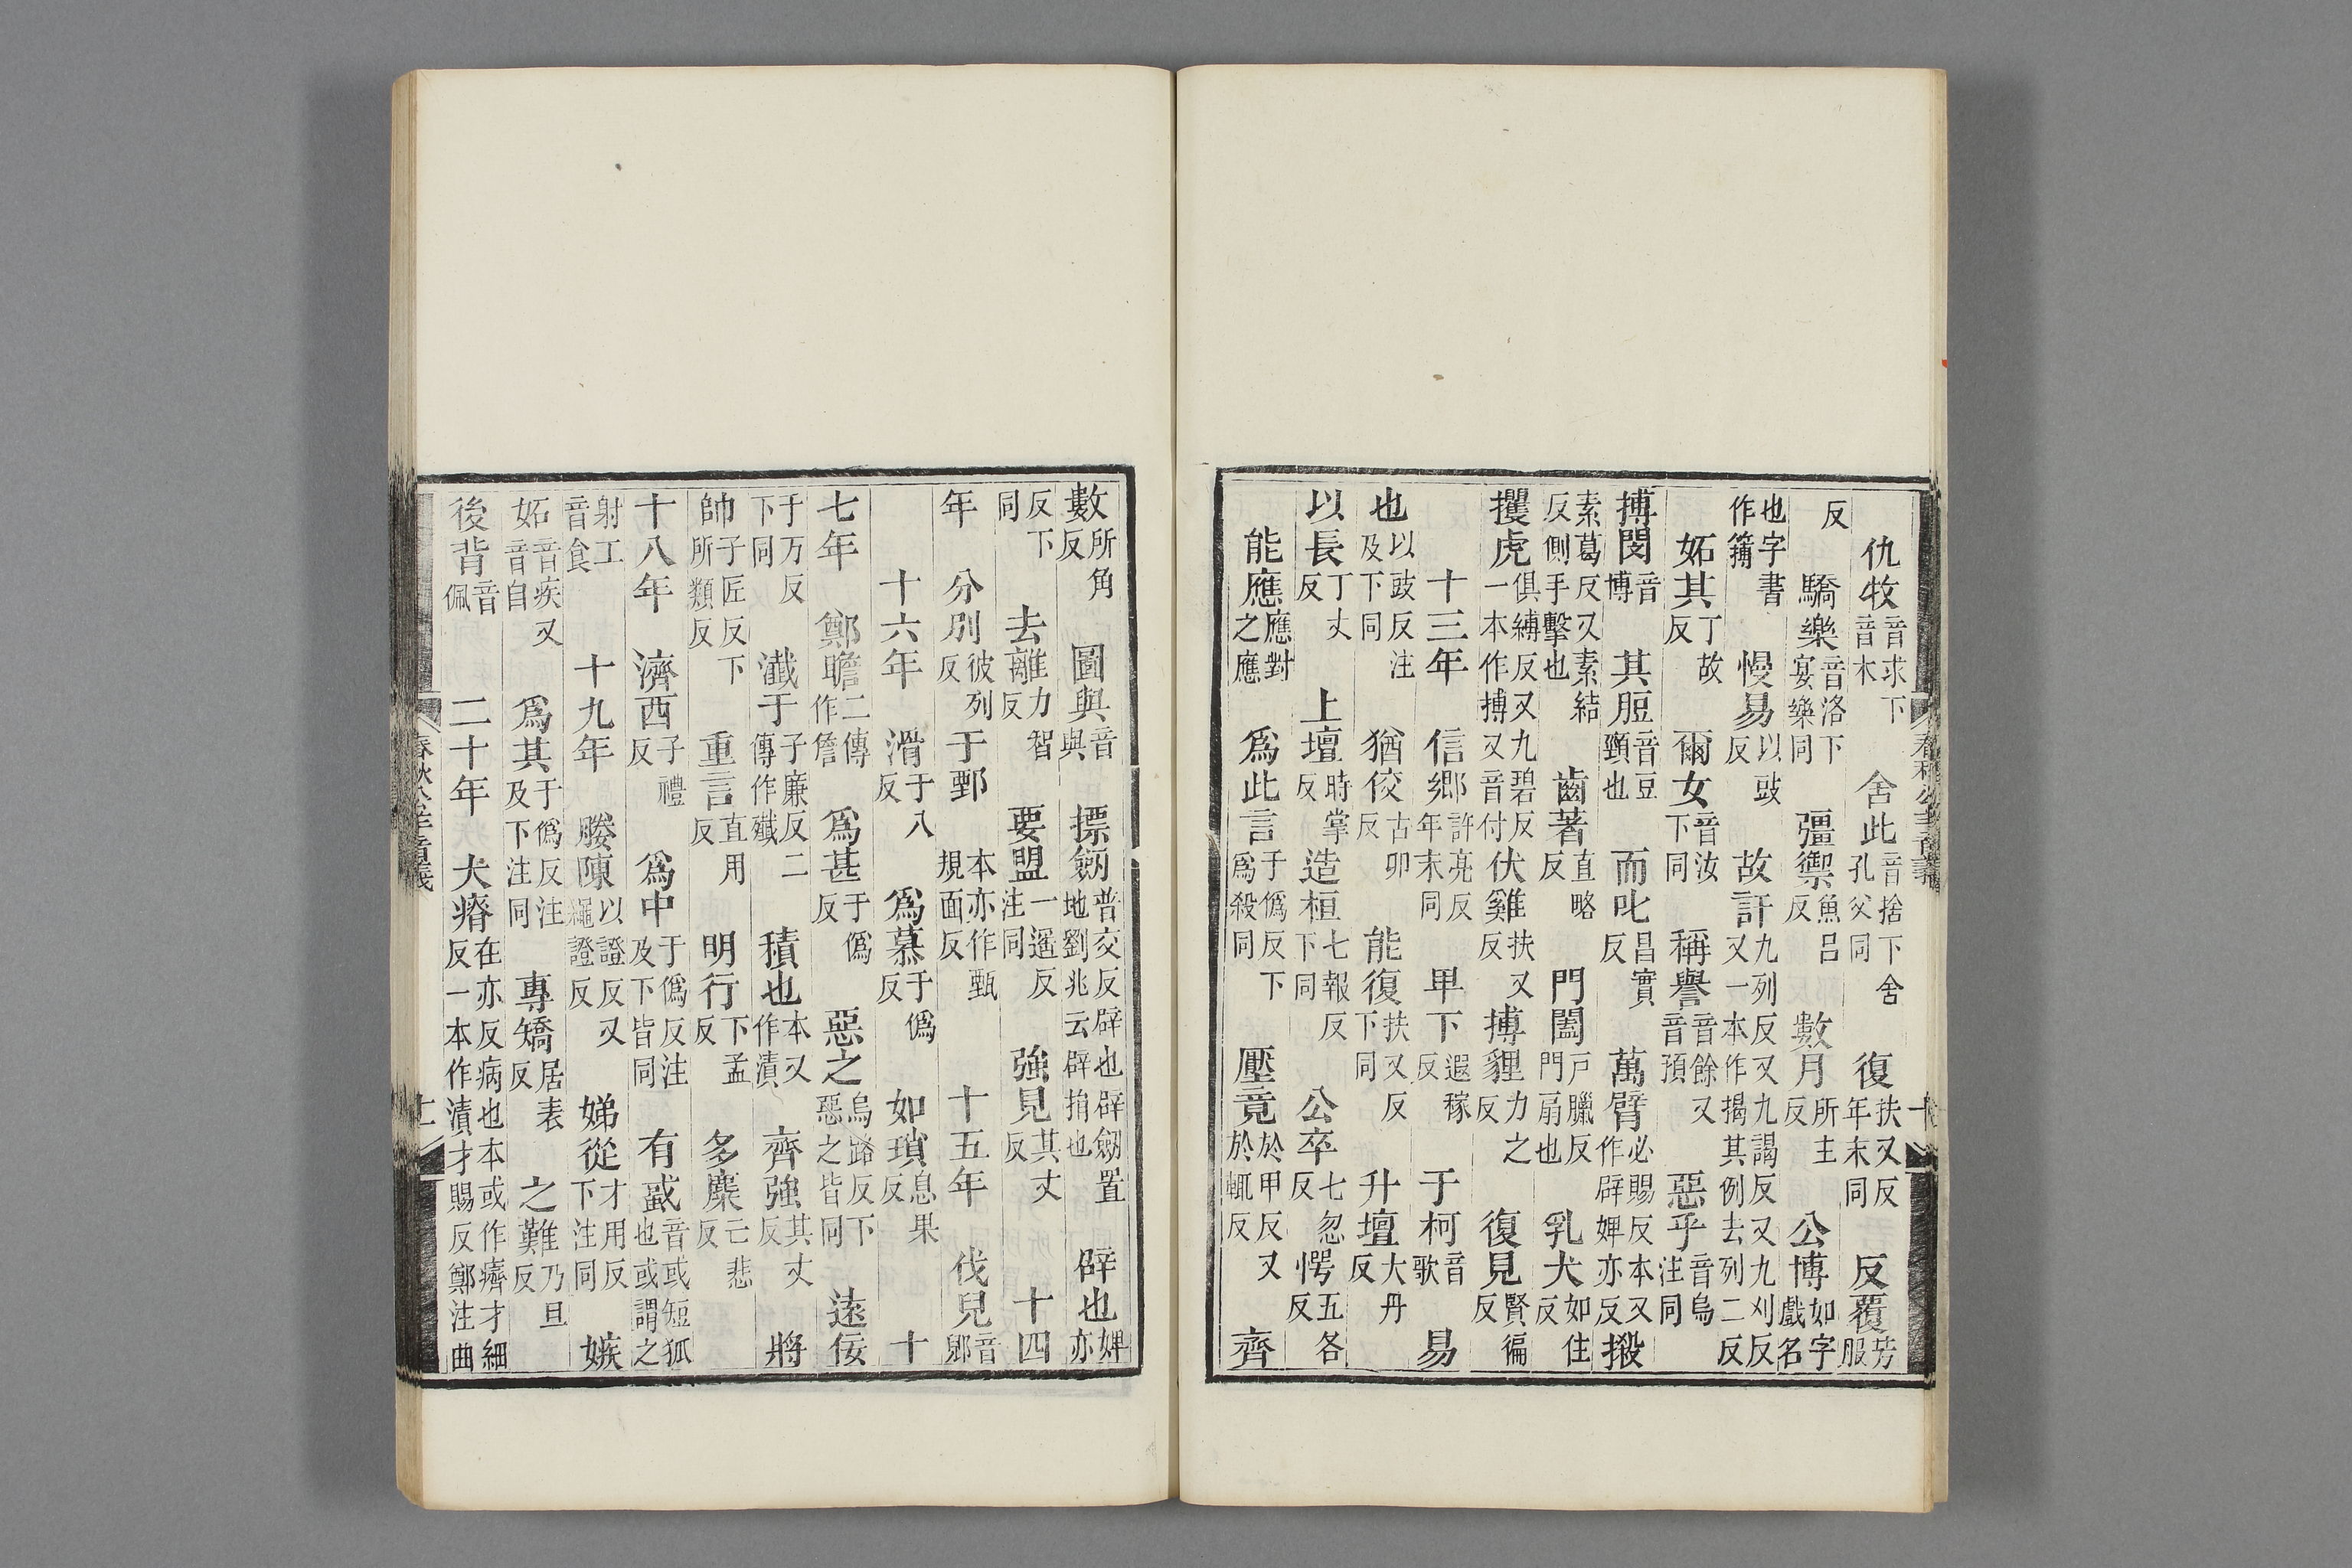 仇牧音求下音木舍此音捨下舍孔父同復扶又反年末同反覆芳服
反驕樂音洛下宴樂同彊禦魚呂反數月所主反公博如字戲名
也字書作簿慢易以豉反故訐九列反又九謁反又九刈反又一本作揭其例去列二反
妬其丁故反爾女音汝下同稱譽音餘又音預惡乎音烏注同
搏閔音博其脰音豆頸也而叱昌實反萬臂必賜反本又作辟婢亦反摋
素葛反又素結反側手擊也齒著直略反門闔戶臘反門扇也乳犬如住反
攫虎俱縛反又九碧反一本作搏又音付伏雞扶又反搏貍力之反復見賢徧反
十三年信鄉許亮反年末同甲下遐稼反于柯音歌易
也以豉反注及下同猶佼古卯反能復扶又反下同升壇大丹反
以長丁丈反上壇時掌反造桓七報反下同公卒七忽反愕五各反
能應應對之應爲此言于僞反下爲殺同壓竟於甲反又於輒反齊
數所角反圖與音與摽劔普交反辟也辟劔置地劉兆云辟捐也辟也婢亦
反下同去離力智反要盟一遥反注同強見其丈反十四
年分別彼列反于鄄本亦作甄規面反十五年伐兒音郳
十六年滑于八反爲慕于僞反如瑣息果反十
七年鄭瞻二傳作詹爲甚于僞反惡之烏路反下惡之皆同遠佞
于万反下同瀸于子廉反二傳作殲積也本又作漬齊強其丈反將
帥子匠反下所類反重言直用反明行下孟反多麋亡悲反
十八年濟西子禮反爲中于僞反注及下皆同有蜮音或短狐也或謂之
射工音食十九年媵陳以證反又繩證反娣從才用反下注同嫉
妬音疾又音自爲其于僞反注及下注同專矯居表反之難乃旦反
後背音佩二十年大瘠在亦反病也本或作㾹才細反一本作漬才賜反鄭注曲
春秋公羊音義